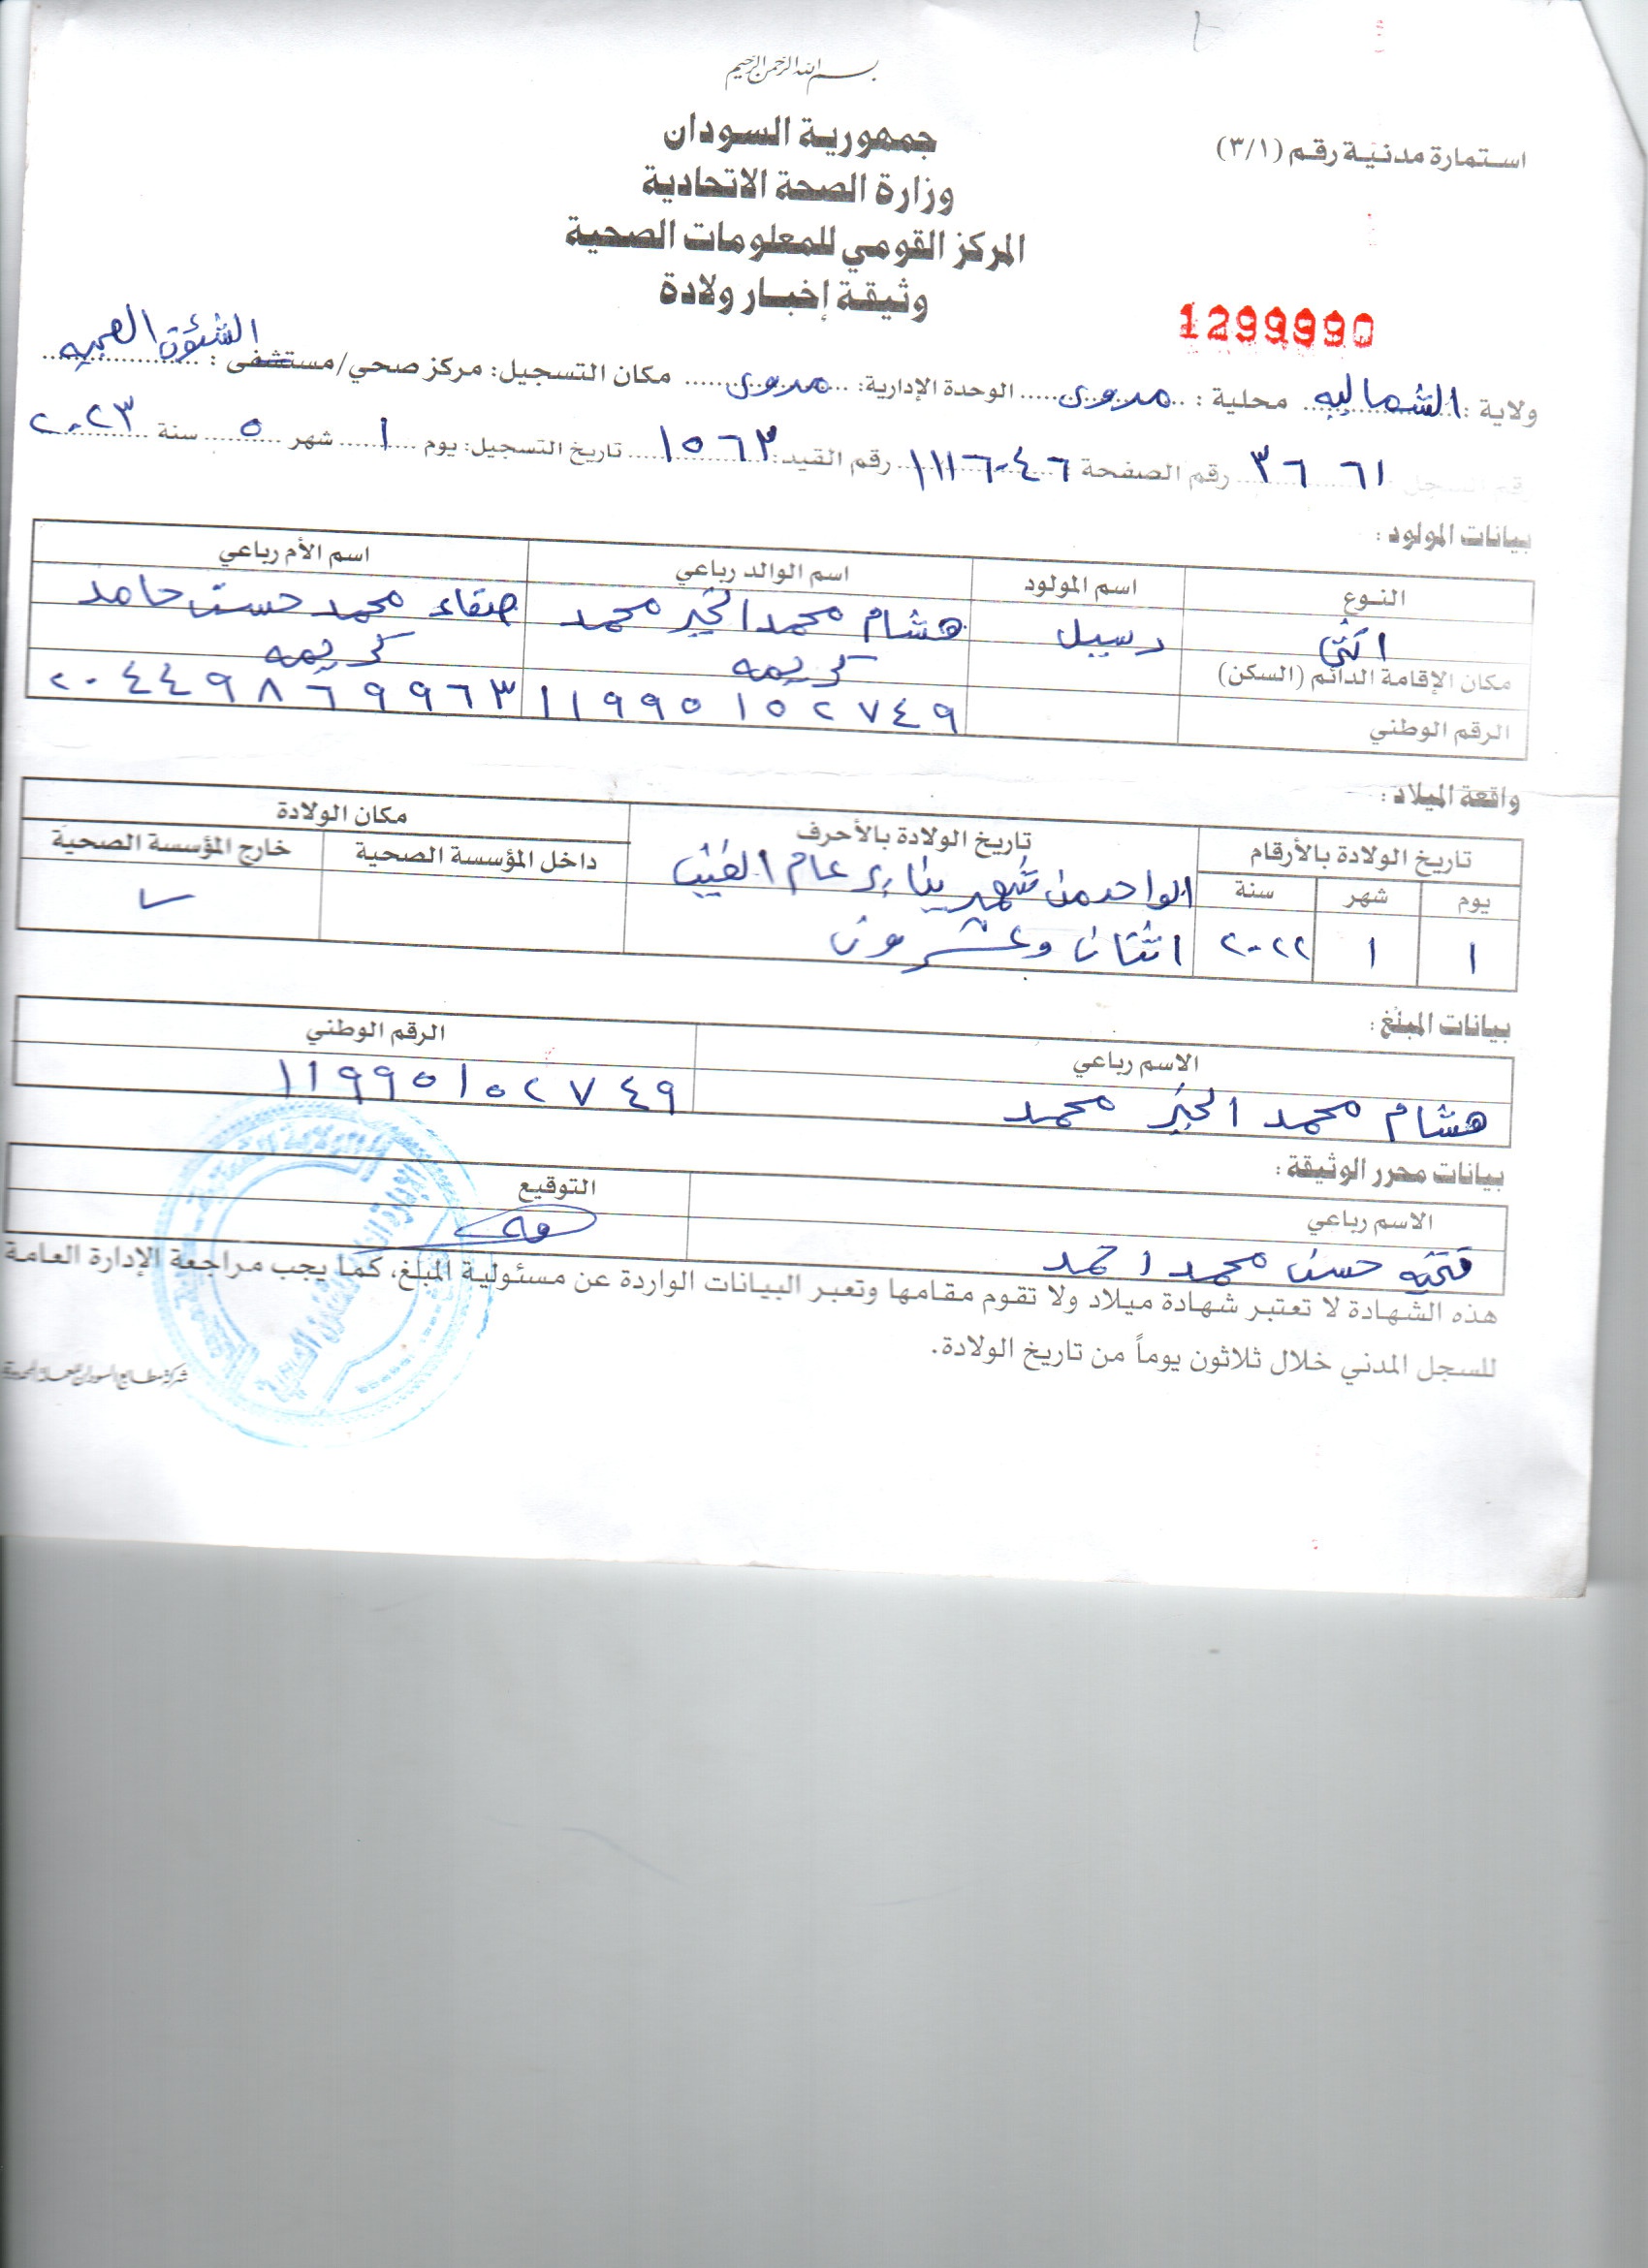 بسم الله الرحمن الرحيم
استمارة مدنية رقم (٣/١)
جمهورية السودان
وزارة الصحة الاتحادية
المركز القومي للمعلومات الصحية
وثيقة إخبار ولادة
1299990
ولاية : الشماليه محلية : مروى الوحدة الإدارية: مروى مكان التسجيل: مركز صحي/مستشفى : الشئون الصحيه
رقم السجل ٣٦ ٦١ رقم الصفحة ١١١٦٠٤٦ رقم القيد: ١٥٦٣ تاريخ التسجيل: يوم ١ شهر ٥ سنة ٢٠٢٣
بيانات المولود :
النوع اسم المولود اسم الوالد رباعي اسم الأم رباعي
انثى رسيل هشام محمد الخير محمد صفاء محمد حسن حامد
مكان الإقامة الدائم (السكن) كريمه كريمه
الرقم الوطني ١١٩٩٥١٥٢٧٤٩ ٢٠٤٤٩٨٦٩٩٦٣
واقعة الميلاد :
تاريخ الولادة بالأرقام تاريخ الولادة بالأحرف مكان الولادة
يوم شهر سنة داخل المؤسسة الصحية خارج المؤسسة الصحية
الواحد من شهر يناير عام الفين
١ ١ ٢٠٢٢ اثنان وعشرون
بيانات المبلغ :
الاسم رباعي الرقم الوطني
هشام محمد الخير محمد ١١٩٩٥١٥٢٧٤٩
بيانات محرر الوثيقة :
الاسم رباعي التوقيع
فتحيه حسن محمد احمد
هذه الشهادة لا تعتبر شهادة ميلاد ولا تقوم مقامها وتعبر البيانات الواردة عن مسئولية المبلغ، كما يجب مراجعة الإدارة العامة
للسجل المدني خلال ثلاثون يوماً من تاريخ الولادة.
شركة مطابع السودان للعملة المحدودة